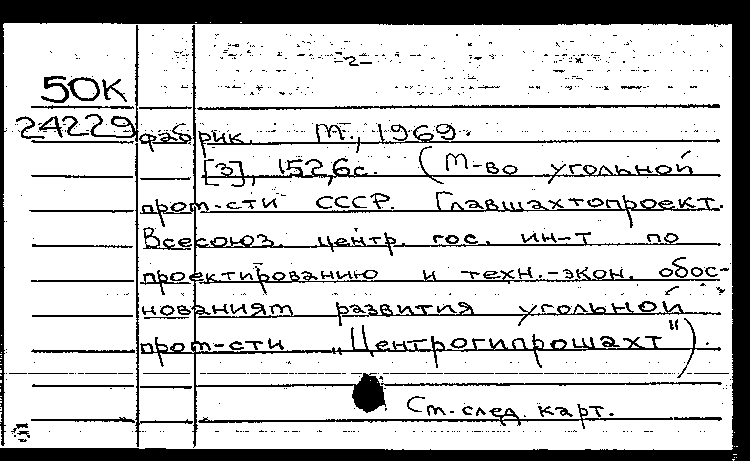 -2-
50К
24229 фабрик. М., 1969.
[3], 152,6с. (М-во угольной
пром-сти СССР. Главшахтопроект.
Всесоюз. центр. гос. ин-т по
проектированию и техн.-экон. обос-
нованиям развития угольной
пром-сти „Центрогипрошахт").
См. след. карт.